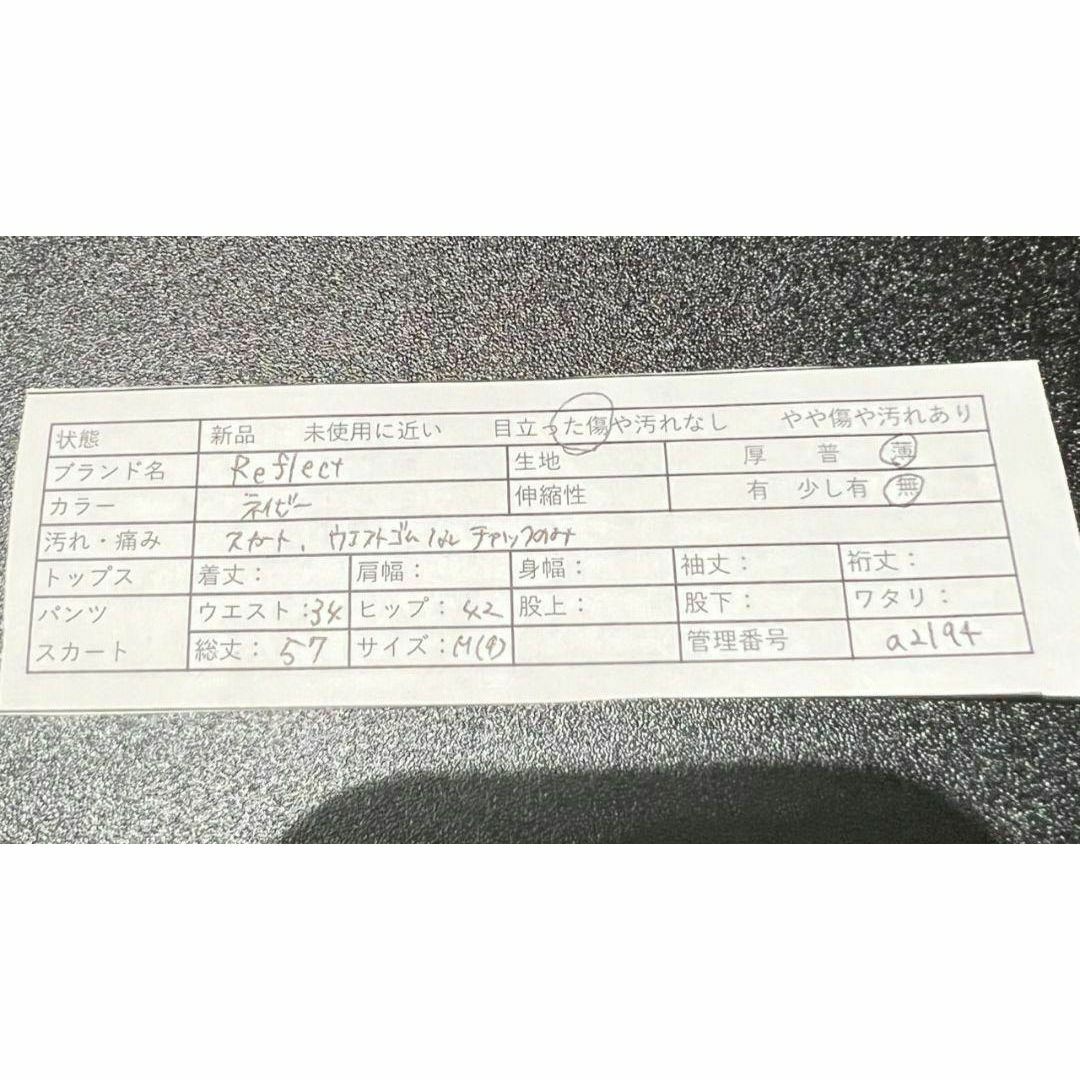 状態 新品 未使用に近い 目立った傷や汚れなし やや傷や汚れあり
ブランド名 Reflect 生地 厚 普 薄
カラー ネイビー 伸縮性 有 少し有 無
汚れ・痛み スカート、ウエストゴムなし チャックのみ
トップス 着丈: 肩幅: 身幅: 袖丈: 裄丈:
パンツ ウエスト:34 ヒップ:42 股上: 股下: ワタリ:
スカート 総丈:57 サイズ:M(9) 管理番号 a2194